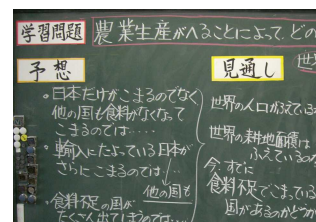 学習問題
農業生産がへることによって、どの
予想
・日本だけがこまるのでなく
他の国も食料がなくなって
こまるのでは‥‥
・輸入にたよっている日本が
さらにこまるのでは‥‥
他の国も
・食料不足の国が
たくさん出てしまうのでは‥‥
見通し
世界の人口がふえている
世界の耕地面積は
ふえているのか
今、すでに
食料不足でこまっている
国があるのかどうか